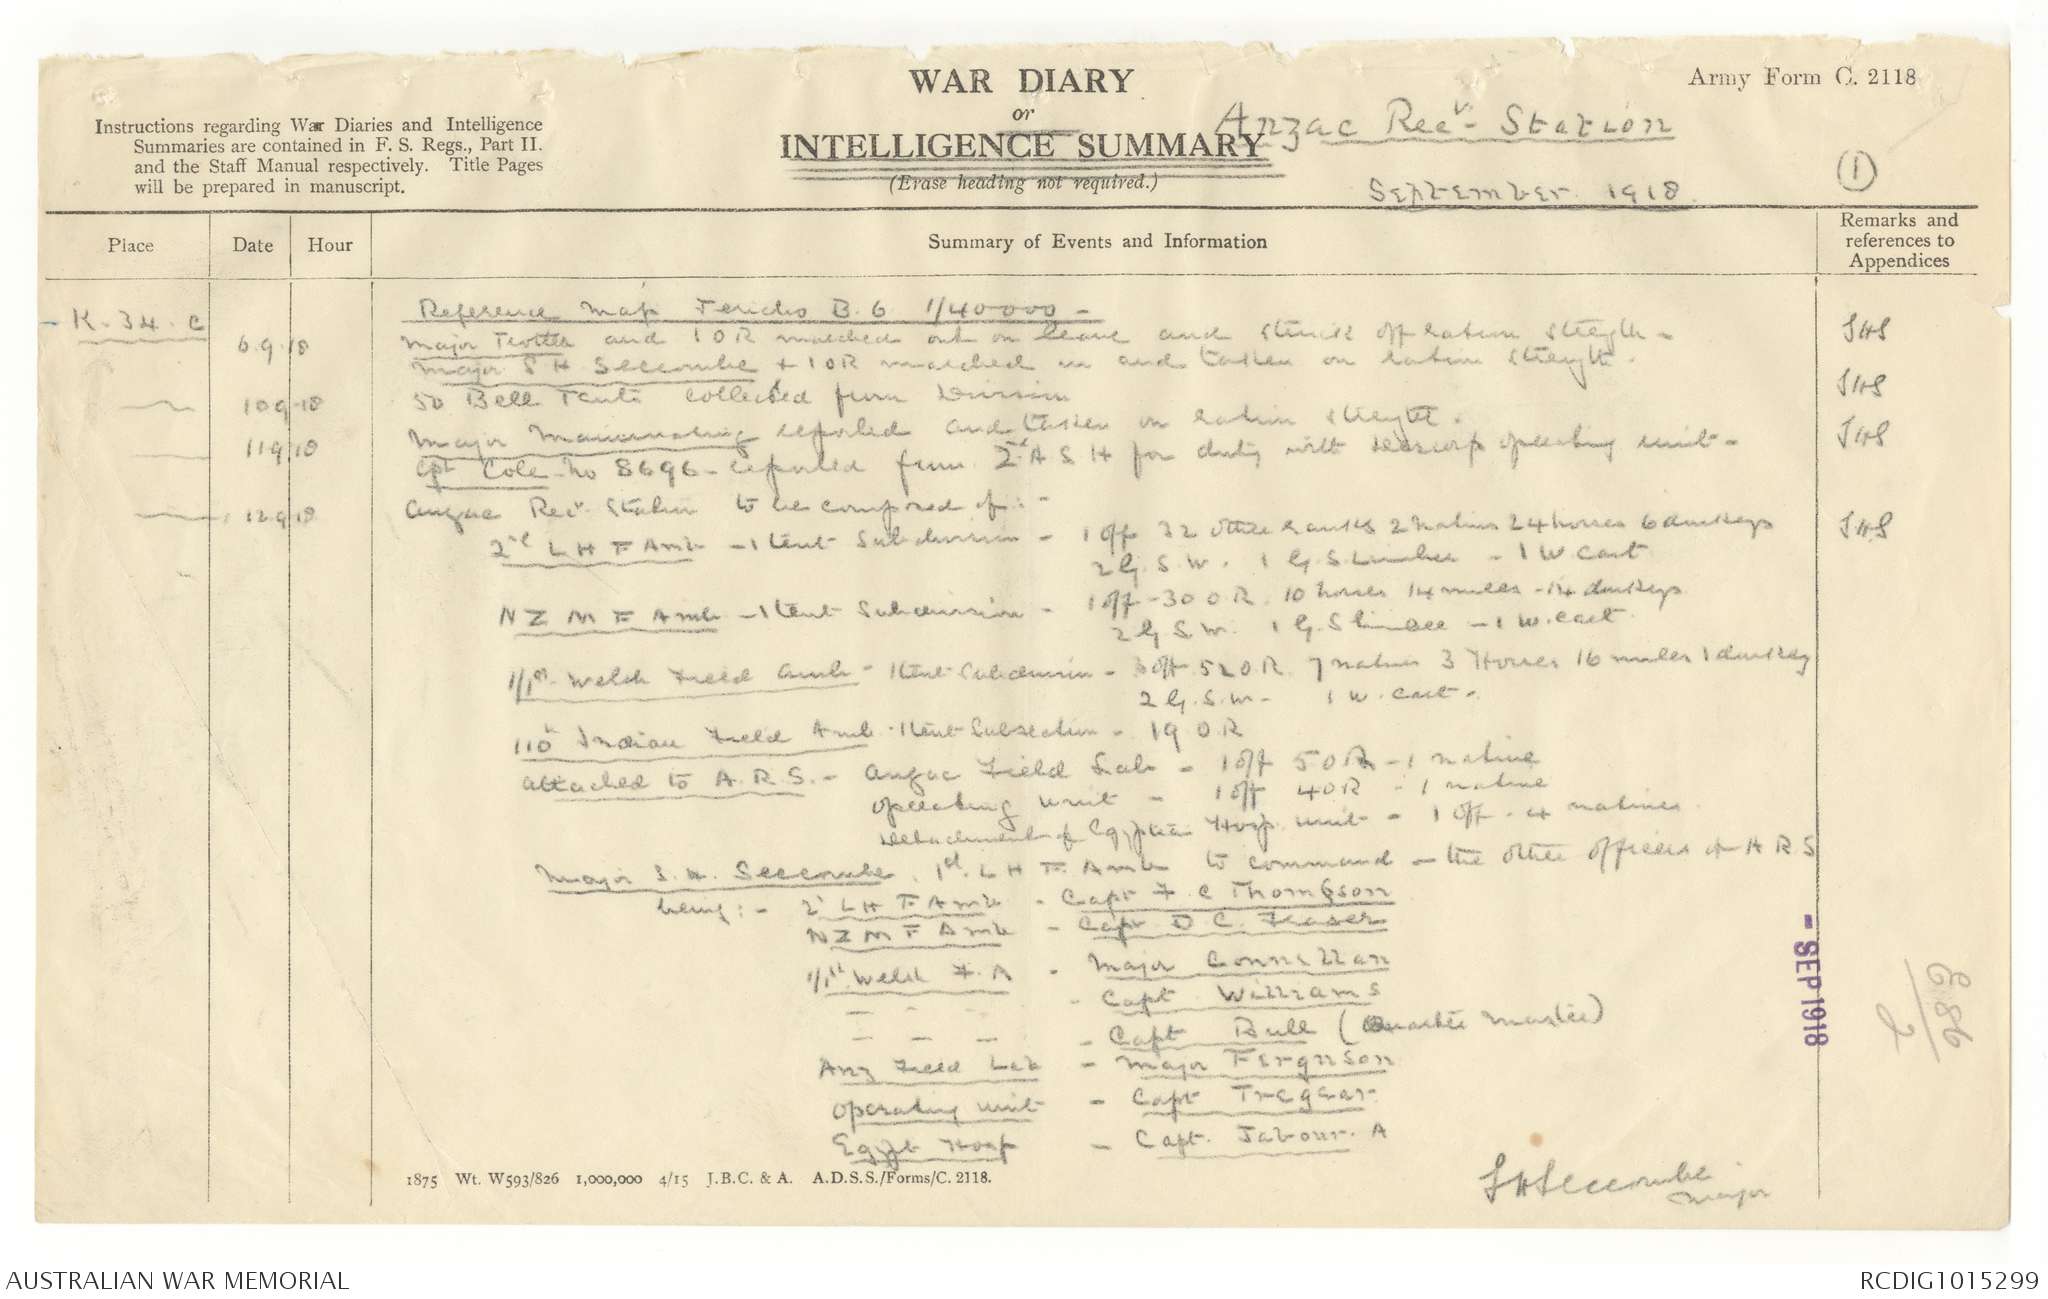 WAR DIARY
or
INTELLIGENCE SUMMARY
(Erase heading not required.)
Army Form C. 2118
Instructions regarding War Diaries and Intelligence
Summaries are contained in F. S. Regs., Part II.
and the Staff Manual respectively. Title Pages
will be prepared in manuscript.
Anzac Recv. Station
September 1918
1
Place
Date
Hour
Summary of Events and Information
Remarks and
references to
Appendices
Reference Map Jericho B.6 1/40000 -
K. 34. C
6.9.18
Major Trotter and 1 OR marched out on leave and struck off ration strength -
SHS
Major S H Seccombe + 1 OR marched in and taken on ration strength.
10.9.18
50 Bell Tents collected from Division
SHS
11.9.18
Major reported and taken on ration strength.
SHS
Cpt Cole No 8696 - reported from 2nd A S H for duty with operating unit -
12.9.18
Anzac Recv. Station to be composed of: -
SHS
2nd L H F Amb - 1 tent Subdivision - 1 off 32 other ranks 2 natives 24 horses 6 donkeys
2 G.S.W. 1 G.S Limber - 1 W. Cart
N Z M F Amb - 1 tent Subdivision - 1 off - 30 O.R. 10 horses 14 mules - 14 donkeys
2 G S.W. 1 G.S Limber - 1 W. Cart.
1/1st Welsh Field Amb - 1 tent Subdivision - 3 off 52 O.R. 7 natives 3 Horses 16 mules 1 donkey
2 G.S.W - 1 W. Cart -
110th Indian Field Amb - 1 tent Subsection - 19 O.R
attached to A.R.S. - Anzac Field Lab - 1 off 5 OR - 1 native
operating unit - 1 off 4 OR - 1 native
Detachment of Egyptian Hosp. unit - 1 off - 4 natives.
Major S.H. Seccombe, 1st L H F Amb to command - the other officers of A R S
being: - 2nd L H F Amb - Capt F. C Thompson
N Z M F Amb - Capt D C. Fraser
1/1st Welsh F. A - Major Connellan
- - - - Capt Williams
- - - - Capt Bull (Quarter Master)
Anz Field Lab - Major Ferguson
Operating unit - Capt Tregear
Egypt Hosp - Capt. Jabour. A
- SEP 1918
S H Seccombe
Major
1875 Wt. W593/826 1,000,000 4/15 J.B.C. & A. A.D.S.S./Forms/C. 2118.
AUSTRALIAN WAR MEMORIAL
RCDIG1015299